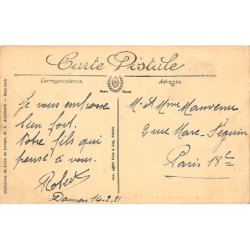 Carte Postale
Correspondance
Adresse
Je vous embrasse
bien fort.
Votre fils qui
pense à vous
Robert
Damas 14-2-21
M. et Mme
2 rue Marc-Séguin
Paris 18e